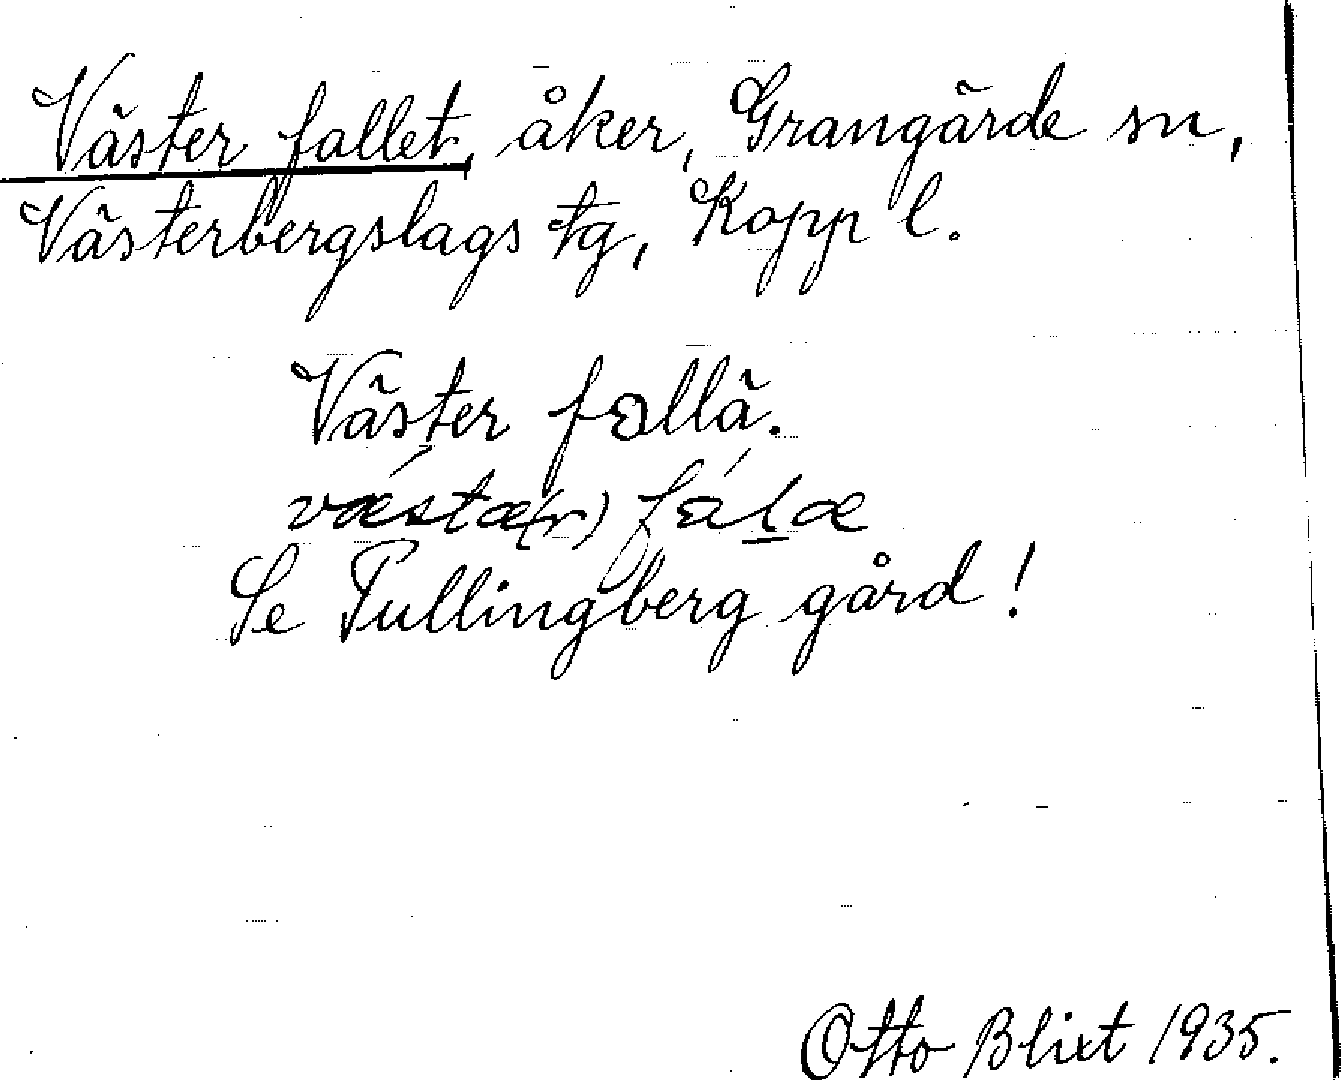 Väster fallet, åker, Grangärde sn,
Västerbergslags tg, Kopp l.
Väster fallä.
væ´stæ(r) fá͏l̲æ
Se Pullingberg gård!
Otto Blixt 1935.